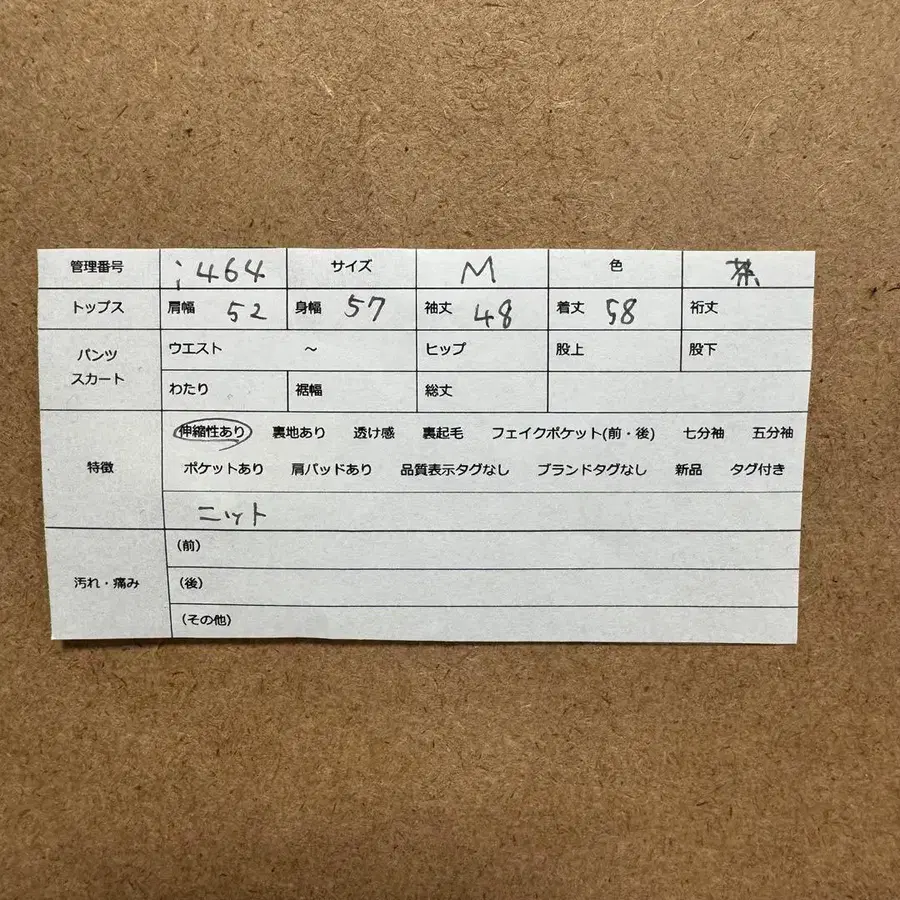 管理番号 i464 サイズ M 色 茶
トップス 肩幅 52 身幅 57 袖丈 48 着丈 58 裄丈
パンツ スカート ウエスト ～ ヒップ 股上 股下
わたり 裾幅 総丈
特徴 伸縮性あり 裏地あり 透け感 裏起毛 フェイクポケット(前・後) 七分袖 五分袖
ポケットあり 肩パッドあり 品質表示タグなし ブランドタグなし 新品 タグ付き
ニット
汚れ・痛み (前)
(後)
(その他)